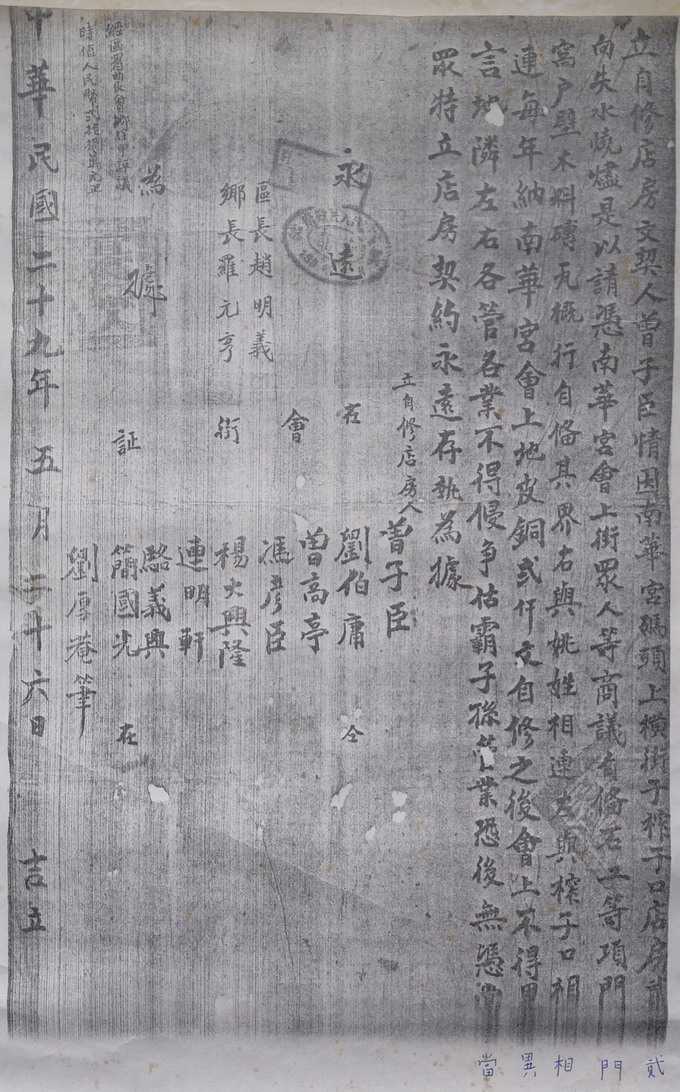 立自修店房文契人曾子臣情因南華宮碼頭上橫街子榨子口店房貳
向失水燒燼是以請憑南華宮會上街眾人等商議自俻石工等項門
窩户壁木料磚瓦概行自俻其界右與姚姓相連左與榨子口相
連每年納南華宮會上地皮銅貳仟文自修之後會上不得異
言地隣左右各管各業不得侵爭估霸子孫管業恐後無憑當
眾特立店房契約永遠存執為據
立自修店房人曾子臣
永遠
在 劉伯庸 仝
曾高亭
會 馮彥臣
區長趙明義
鄉長羅元亨
街 楊大興隆
連明軒
駱義興
為據
証 簡國光 在
劉厚菴筆
時值人民幣貳拾萬元正
中華民國二十九年五月二十六日 吉立
貳
門
相
異
當